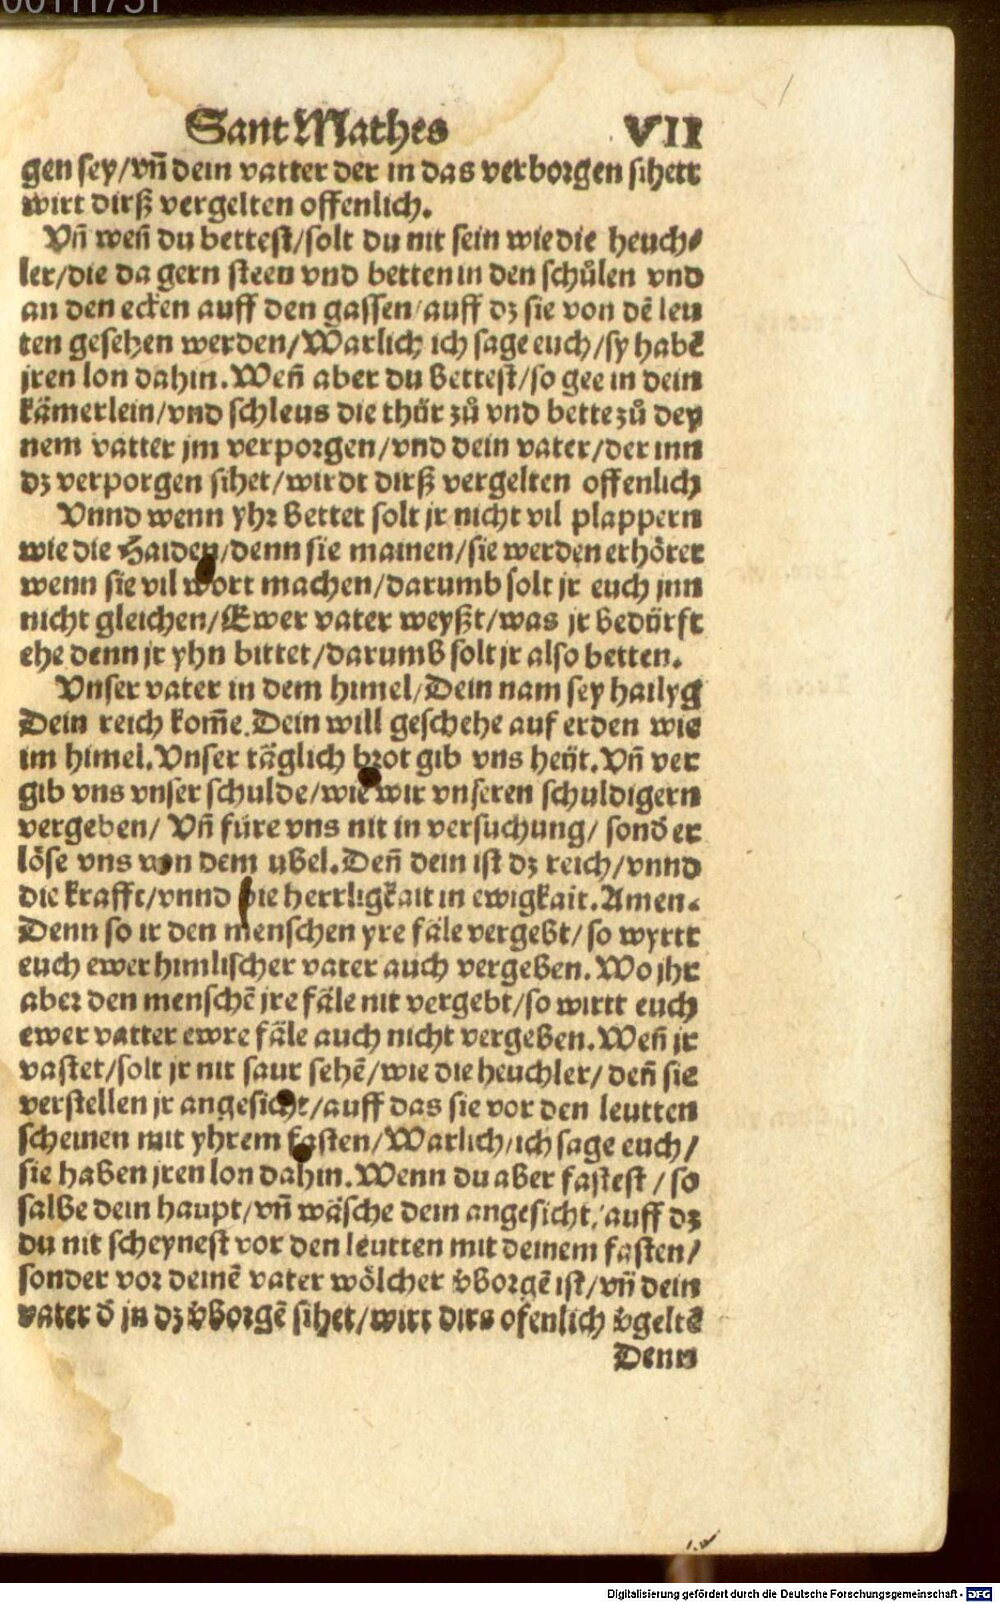 00111731
Sant Mathes VII
gen sey/vñ dein vatter der in das verborgen sihett
wirt dirß vergelten offenlich.
Vñ weñ du bettest/solt du nit sein wie die heuch⸗
ler/die da gern steen vnd betten in den schůlen vnd
an den ecken auff den gassen/auff dz sie von dē leu
ten gesehen werden/Warlich ich sage euch/sy habē
jren lon dahin. Weñ aber du bettest/so gee in dein
kämerlein/vnd schleus die thür zů vnd bette zů dey
nem vatter jm verporgen/vnd dein vater/der inn
dz verporgen sihet/wirdt dirß vergelten offenlich
Vnnd wenn yhr bettet solt jr nicht vil plappern
wie die Haiden/denn sie mainen/sie werden erhöret
wenn sie vil wort machen/darumb solt jr euch jnn
nicht gleichen/Ewer vater weyßt/was jr bedürft
ehe denn jr yhn bittet/darumb solt jr also betten.
Vnser vater in dem himel/Dein nam sey hailyg
Dein reich kom̃e. Dein will geschehe auf erden wie
im himel. Vnser täglich brot gib vns heüt. Vñ ver
gib vns vnser schulde/wie wir vnseren schuldigern
vergeben/ Vñ füre vns nit in versuchung/ sonď er
löse vns von dem ubel. Deñ dein ist dz reich/vnnd
die krafft/vnnd die herrligkait in ewigkait. Amen.
Denn so ir den menschen yre fäle vergebt/so wyrtt
euch ewer himlischer vater auch vergeben. Wo jhr
aber den menschē jre fäle nit vergebt/so wirtt euch
ewer vatter ewre fäle auch nicht vergeben. Weñ jr
vastet/solt jr nit saur sehē/wie die heuchler/ deñ sie
verstellen jr angesicht/auff das sie vor den leutten
scheinen mit yhrem fasten/Warlich/ich sage euch/
sie haben jren lon dahin. Wenn du aber fastest/so
salbe dein haupt/vñ wäsche dein angesicht/auff dz
du nit scheynest vor den leutten mit deinem fasten/
sonder vor deinē vater wölcher v̓borgē ist/vñ dein
vater ď jn dz v̓borgē sihet/wirt dirs ofenlich v̓geltē
Denn
Digitalisierung gefördert durch die Deutsche Forschungsgemeinschaft - DFG